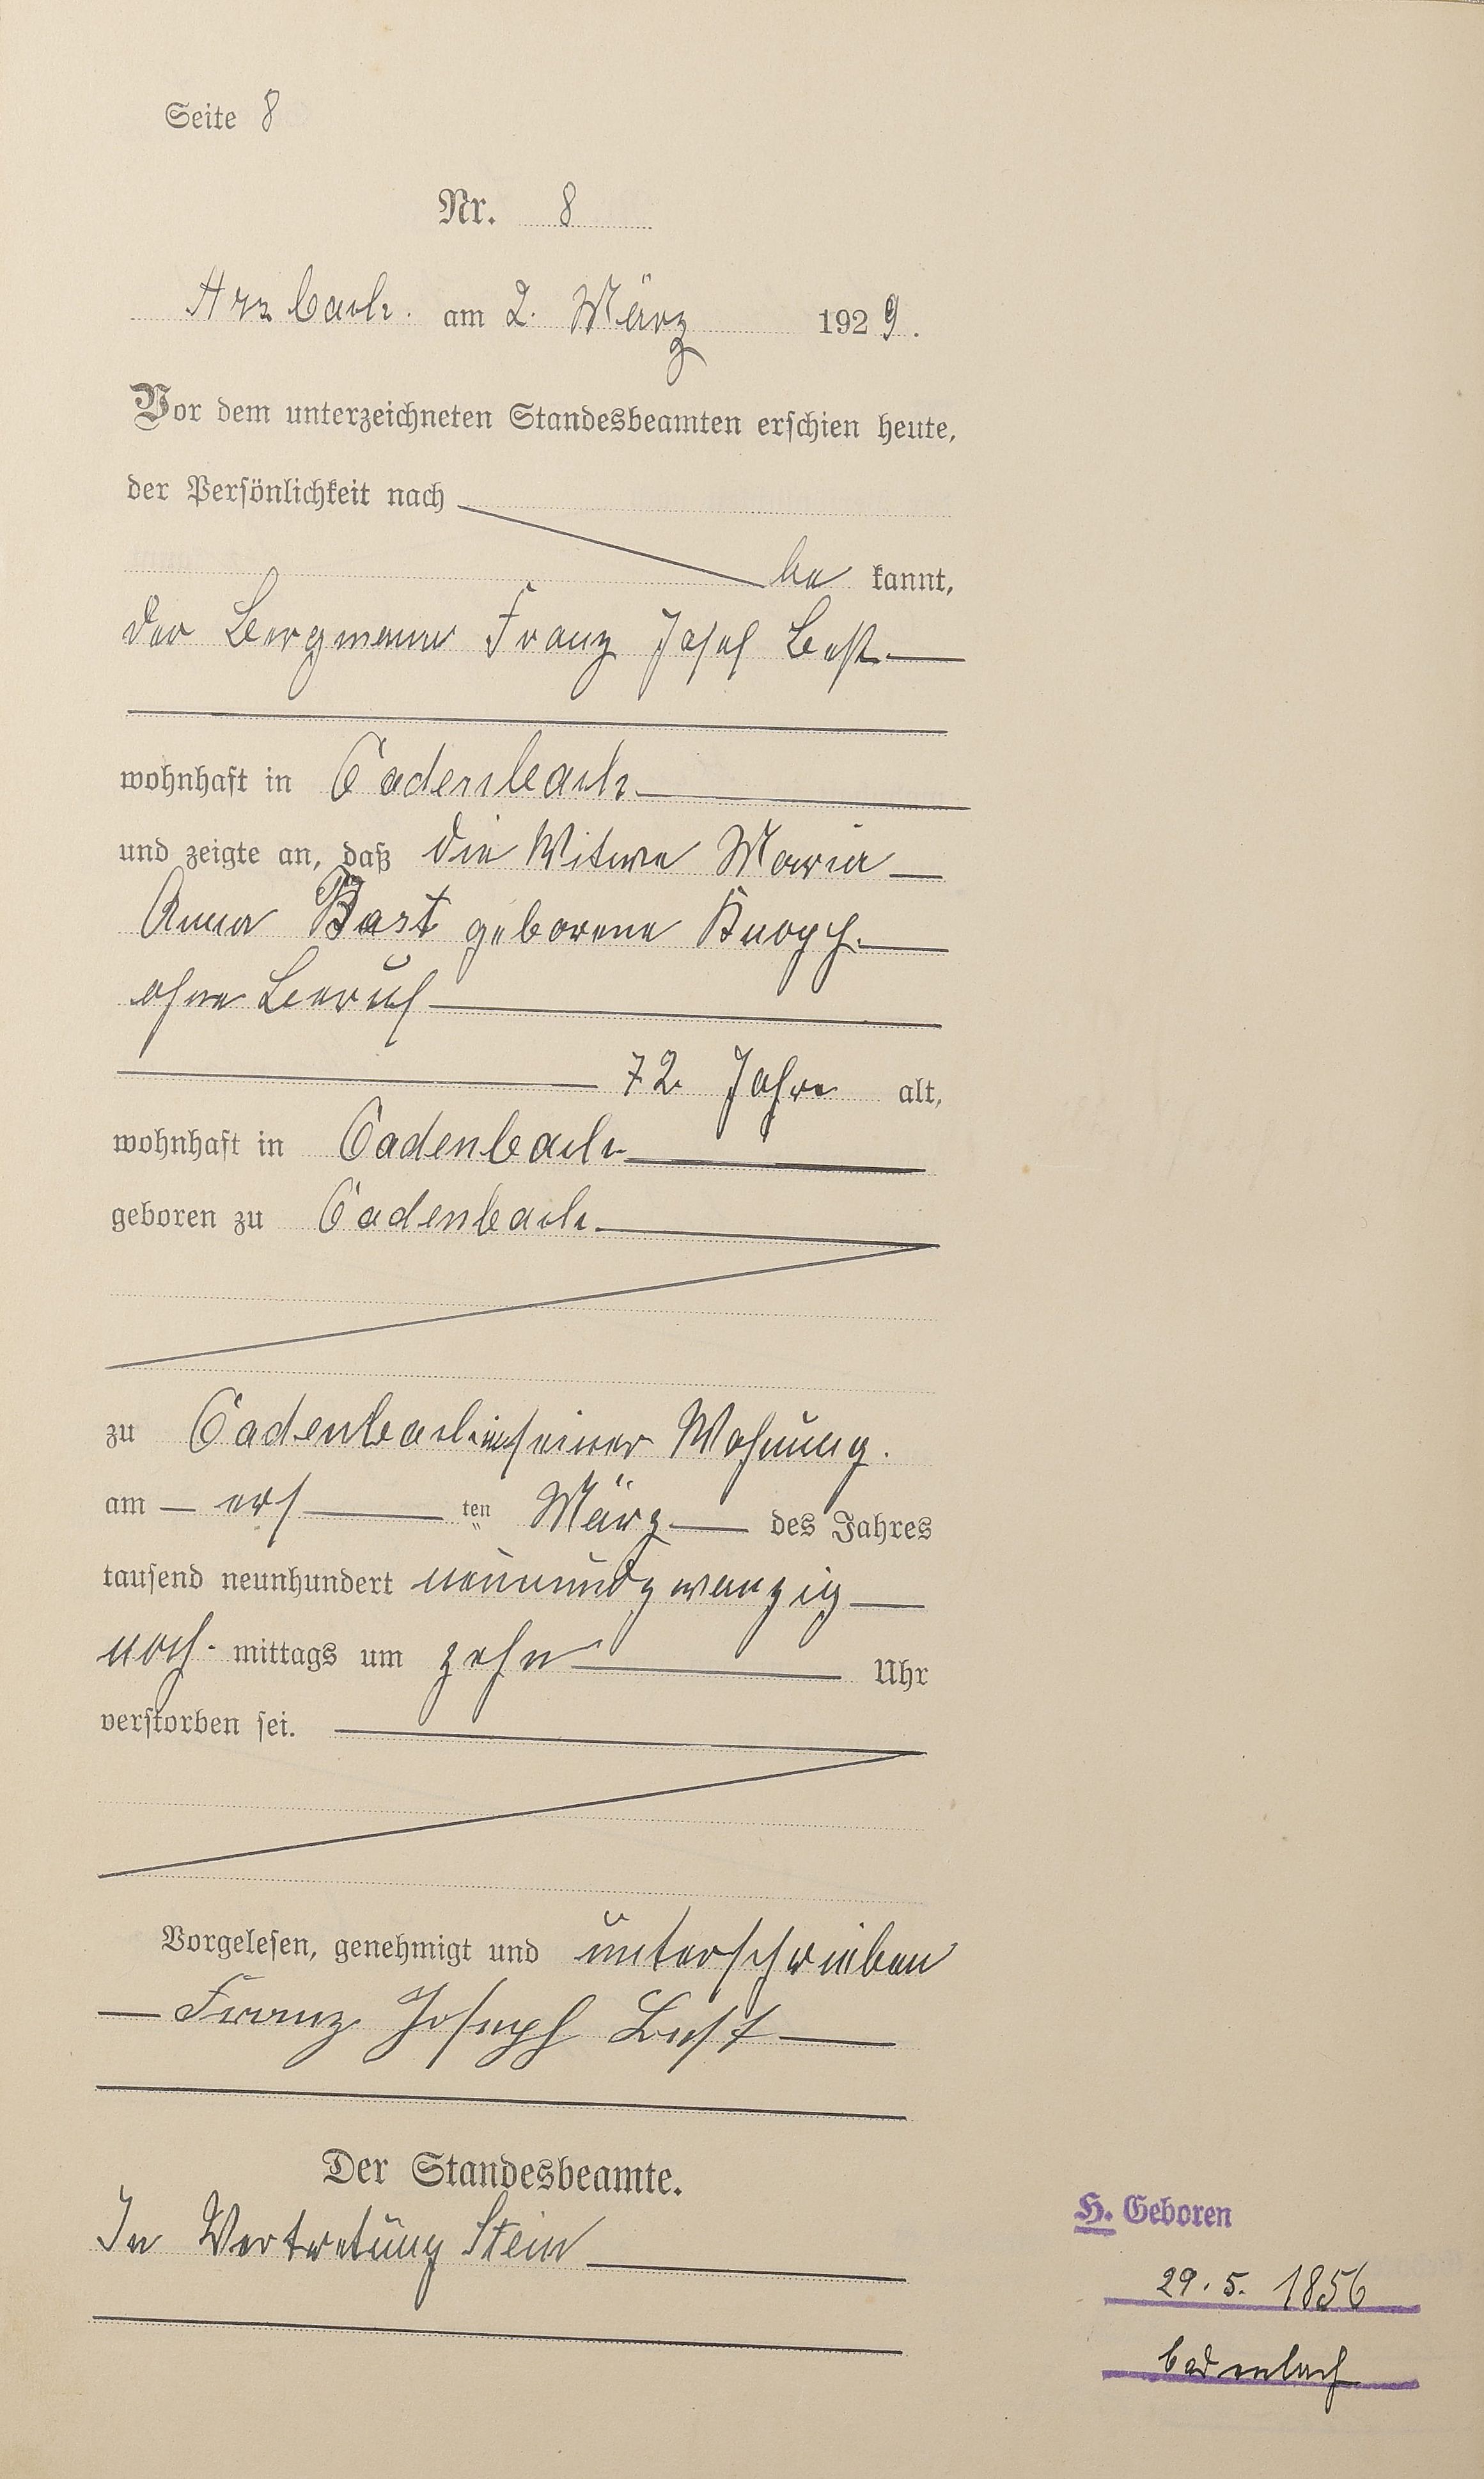 Seite 8
Nr. 8
Arzbach. am 2. März 1929.
Vor dem unterzeichneten Standesbeamten erschien heute,
der Persönlichkeit nach
be kannt,
der Bergmann Franz Josef Best
wohnhaft in Cadenbach
und zeigte an, daß die Witwe Maria
Anna Best geborene Knopp.
ohne Beruf
72 Jahre alt,
wohnhaft in Cadenbach
geboren zu Cadenbach
zu Cadenbach in seiner Wohnung.
am ers ten März des Jahres
tausend neunhundert neunundzwanzig
nach mittags um zehn Uhr
verstorben sei.
Vorgelesen, genehmigt und unterschrieben
Franz Joseph Best
Der Standesbeamte.
In Vertretung Stein
H. Geboren
29. 5. 1856
Cadenbach